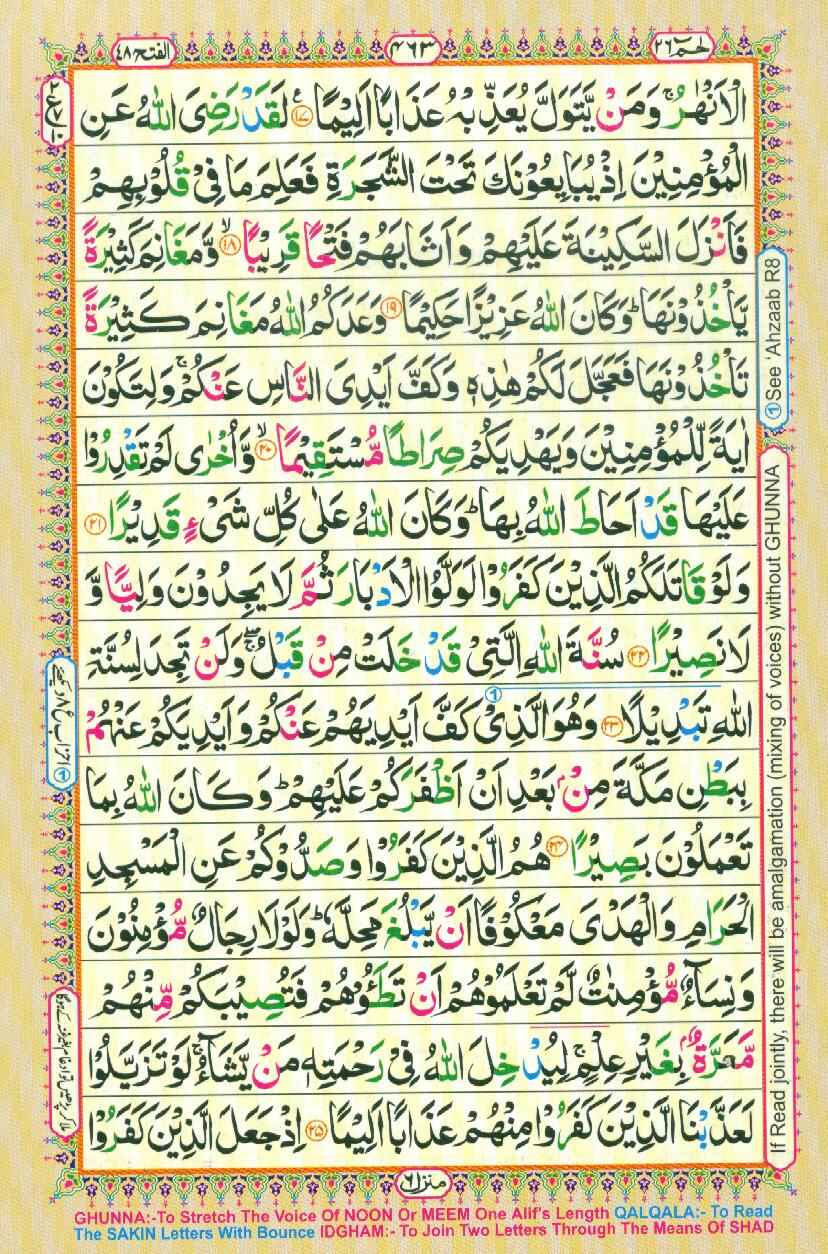 حٰمٓ ٢٦
٤٦٣
الفتح ٤٨
الْاَنْهٰرُ ۚ وَمَنْ يَّتَوَلَّ يُعَذِّبْهُ عَذَابًا اَلِيْمًا ﴿١٧﴾ لَقَدْ رَضِىَ اللّٰهُ عَنِ
الْمُؤْمِنِيْنَ اِذْ يُبَايِعُوْنَكَ تَحْتَ الشَّجَرَةِ فَعَلِمَ مَا فِىْ قُلُوْبِهِمْ
فَاَنْزَلَ السَّكِيْنَةَ عَلَيْهِمْ وَاَثَابَهُمْ فَتْحًا قَرِيْبًا ۙ﴿١٨﴾ وَّمَغَانِمَ كَثِيْرَةً
يَّاْخُذُوْنَهَا ؕ وَكَانَ اللّٰهُ عَزِيْزًا حَكِيْمًا ﴿١٩﴾ وَعَدَكُمُ اللّٰهُ مَغَانِمَ كَثِيْرَةً
تَاْخُذُوْنَهَا فَعَجَّلَ لَكُمْ هٰذِهٖ وَكَفَّ اَيْدِىَ النَّاسِ عَنْكُمْ ۚ وَلِتَكُوْنَ
اٰيَةً لِّلْمُؤْمِنِيْنَ وَيَهْدِيَكُمْ صِرَاطًا مُّسْتَقِيْمًا ۙ﴿٢٠﴾ وَّاُخْرٰى لَمْ تَقْدِرُوْا
عَلَيْهَا قَدْ اَحَاطَ اللّٰهُ بِهَا ؕ وَكَانَ اللّٰهُ عَلٰى كُلِّ شَىْءٍ قَدِيْرًا ﴿٢١﴾
وَلَوْ قَاتَلَكُمُ الَّذِيْنَ كَفَرُوْا لَوَلَّوُا الْاَدْبَارَ ثُمَّ لَا يَجِدُوْنَ وَلِيًّا وَّ
لَا نَصِيْرًا ﴿٢٢﴾ سُنَّةَ اللّٰهِ الَّتِىْ قَدْ خَلَتْ مِنْ قَبْلُ ۖۚ وَلَنْ تَجِدَ لِسُنَّةِ
اللّٰهِ تَبْدِيْلًا ﴿٢٣﴾ وَهُوَ الَّذِىْ كَفَّ اَيْدِيَهُمْ عَنْكُمْ وَاَيْدِيَكُمْ عَنْهُمْ
بِبَطْنِ مَكَّةَ مِنْۢ بَعْدِ اَنْ اَظْفَرَكُمْ عَلَيْهِمْ ؕ وَكَانَ اللّٰهُ بِمَا
تَعْمَلُوْنَ بَصِيْرًا ﴿٢٤﴾ هُمُ الَّذِيْنَ كَفَرُوْا وَصَدُّوْكُمْ عَنِ الْمَسْجِدِ
الْحَرَامِ وَالْهَدْىَ مَعْكُوْفًا اَنْ يَّبْلُغَ مَحِلَّهٗ ؕ وَلَوْلَا رِجَالٌ مُّؤْمِنُوْنَ
وَنِسَآءٌ مُّؤْمِنٰتٌ لَّمْ تَعْلَمُوْهُمْ اَنْ تَطَـُٔوْهُمْ فَتُصِيْبَكُمْ مِّنْهُمْ
مَّعَرَّةٌۢ بِغَيْرِ عِلْمٍ ۚ لِيُدْخِلَ اللّٰهُ فِىْ رَحْمَتِهٖ مَنْ يَّشَآءُ ۚ لَوْ تَزَيَّلُوْا
لَعَذَّبْنَا الَّذِيْنَ كَفَرُوْا مِنْهُمْ عَذَابًا اَلِيْمًا ﴿٢٥﴾ اِذْ جَعَلَ الَّذِيْنَ كَفَرُوْا
① See 'Ahzaab R8
If Read jointly, there will be amalgamation (mixing of voices) without GHUNNA
منزل ٦
GHUNNA:-To Stretch The Voice Of NOON Or MEEM One Alif's Length QALQALA:- To Read
The SAKIN Letters With Bounce IDGHAM:- To Join Two Letters Through The Means Of SHAD